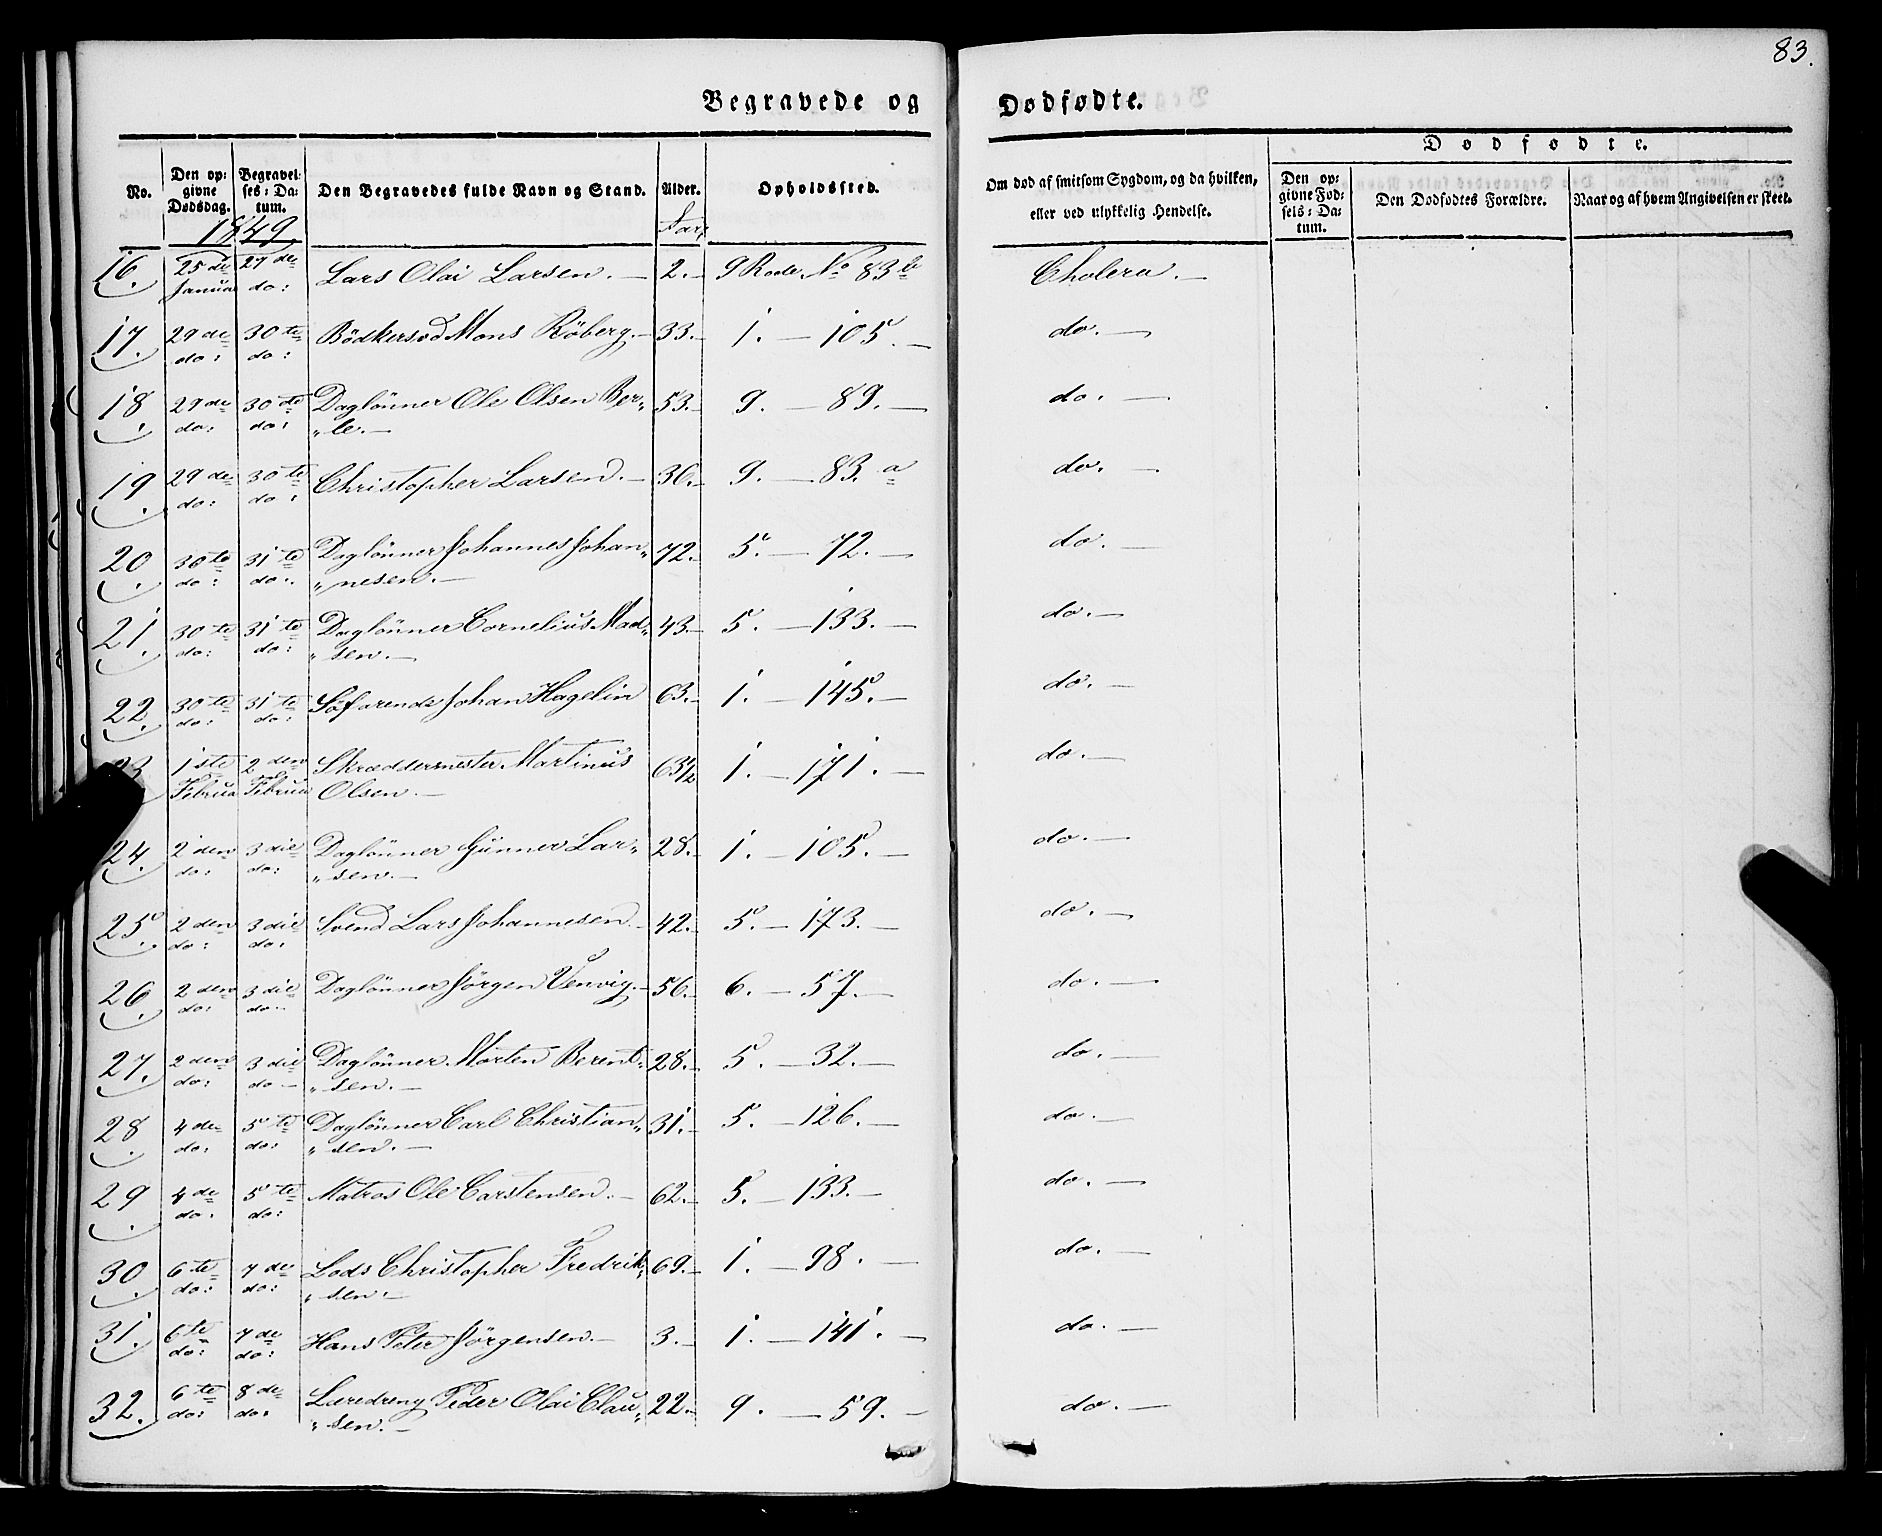 83.
Begravede og Dødfødte.
No. Den opgivne Dødsdag. Begravelses-Datum. Den Begravedes fulde Navn og Stand. Alder. Opholdssted. Om død af smitsom Sygdom, og da hvilken, eller ved ulykkelig Hendelse.
Dødfødte.
Den opgivne Fødsels-Datum. Den Dødfødtes Forældre. Naar og af hvem Angivelsen er skeet.
1849. Aar,
16. 25de Januar 27de do: Lars Olai Larsen. — 2. — 9 Rode. No 83 b Cholera. —
17. 29de do: 30te do: Bödkersvd Mons Röberg. — 33. — 1. — 105. — do. —
18. 29de do: 30te do: Daglönner Ole Olsen Ber„
„le. — 53. — 9. — 89. — do. —
19. 29de do: 30te do: Christopher Larsen. — 36. — 9. — 83. a do. —
20. 30te do: 31te do: Daglönner Johannes Johan„
„nesen. — 72. — 5. — 72. — do. —
21. 30te do: 31te do: Daglönner Cornelius Mad„
„sen. — 43. — 5. — 133. — do. —
22. 30te do: 31te do: Söfarende Johan Hagelin 63. — 1. — 145. — do. —
23 1ste Februa 2den Februa Skræddermester Martinus
Olsen. — 63½ 1. — 171. — do. —
24. 2den do: 3die do: Daglönner Gunner Lar„
„sen. — 28. — 1. — 105. — do. —
25. 2den do: 3die do: Svend Lars Johannesen. — 42. — 5. — 173. — do. —
26. 2den do: 3die do — Daglönner Jörgen Venvig. — 56. — 6. — 57. — do. —
27. 2den do: 3die do — Daglönner Morten Berent„
„sen. — 28. — 5. — 32. — do. —
28. 4de do: 5te do: Daglönner Carl Christian„
„sen. — 31. — 5. — 126. — do. —
29. 4de do: 5te do: Matros Ole Carstensen. — 62. — 5. — 133. — do. —
30. 6te do: 7de do: Lods Christopher Fredrik„
„sen. — 69. — 1. — 98. — do. —
31. 6te do: 7de do: Hans Peter Jörgensen. — 3. — 1. — 141. — do. —
32. 6te do: 8de do: Læredreng Peder Olai Clau„
„sen. — 22. — 9. — 59. — do. —